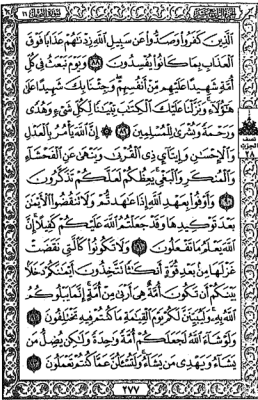 الجزء الرابع عشر سورة النحل ١٦
ٱلَّذِينَ كَفَرُوا۟ وَصَدُّوا۟ عَن سَبِيلِ ٱللَّهِ زِدْنَٰهُمْ عَذَابًا فَوْقَ
ٱلْعَذَابِ بِمَا كَانُوا۟ يُفْسِدُونَ ٨٨ وَيَوْمَ نَبْعَثُ فِى كُلِّ
أُمَّةٍ شَهِيدًا عَلَيْهِم مِّنْ أَنفُسِهِمْ وَجِئْنَا بِكَ شَهِيدًا عَلَىٰ
هَٰٓؤُلَآءِ وَنَزَّلْنَا عَلَيْكَ ٱلْكِتَٰبَ تِبْيَٰنًا لِّكُلِّ شَىْءٍ وَهُدًى
وَرَحْمَةً وَبُشْرَىٰ لِلْمُسْلِمِينَ ٨٩ إِنَّ ٱللَّهَ يَأْمُرُ بِٱلْعَدْلِ
وَٱلْإِحْسَٰنِ وَإِيتَآئِ ذِى ٱلْقُرْبَىٰ وَيَنْهَىٰ عَنِ ٱلْفَحْشَآءِ
وَٱلْمُنكَرِ وَٱلْبَغْىِ يَعِظُكُمْ لَعَلَّكُمْ تَذَكَّرُونَ
٩٠ وَأَوْفُوا۟ بِعَهْدِ ٱللَّهِ إِذَا عَٰهَدتُّمْ وَلَا تَنقُضُوا۟ ٱلْأَيْمَٰنَ
بَعْدَ تَوْكِيدِهَا وَقَدْ جَعَلْتُمُ ٱللَّهَ عَلَيْكُمْ كَفِيلًا إِنَّ
ٱللَّهَ يَعْلَمُ مَا تَفْعَلُونَ ٩١ وَلَا تَكُونُوا۟ كَٱلَّتِى نَقَضَتْ
غَزْلَهَا مِنۢ بَعْدِ قُوَّةٍ أَنكَٰثًا تَتَّخِذُونَ أَيْمَٰنَكُمْ دَخَلًۢا
بَيْنَكُمْ أَن تَكُونَ أُمَّةٌ هِىَ أَرْبَىٰ مِنْ أُمَّةٍ إِنَّمَا يَبْلُوكُمُ
ٱللَّهُ بِهِۦ وَلَيُبَيِّنَنَّ لَكُمْ يَوْمَ ٱلْقِيَٰمَةِ مَا كُنتُمْ فِيهِ تَخْتَلِفُونَ ٩٢
وَلَوْ شَآءَ ٱللَّهُ لَجَعَلَكُمْ أُمَّةً وَٰحِدَةً وَلَٰكِن يُضِلُّ مَن
يَشَآءُ وَيَهْدِى مَن يَشَآءُ وَلَتُسْـَٔلُنَّ عَمَّا كُنتُمْ تَعْمَلُونَ ٩٣
نصف
الحزب
٢٨
٢٧٧